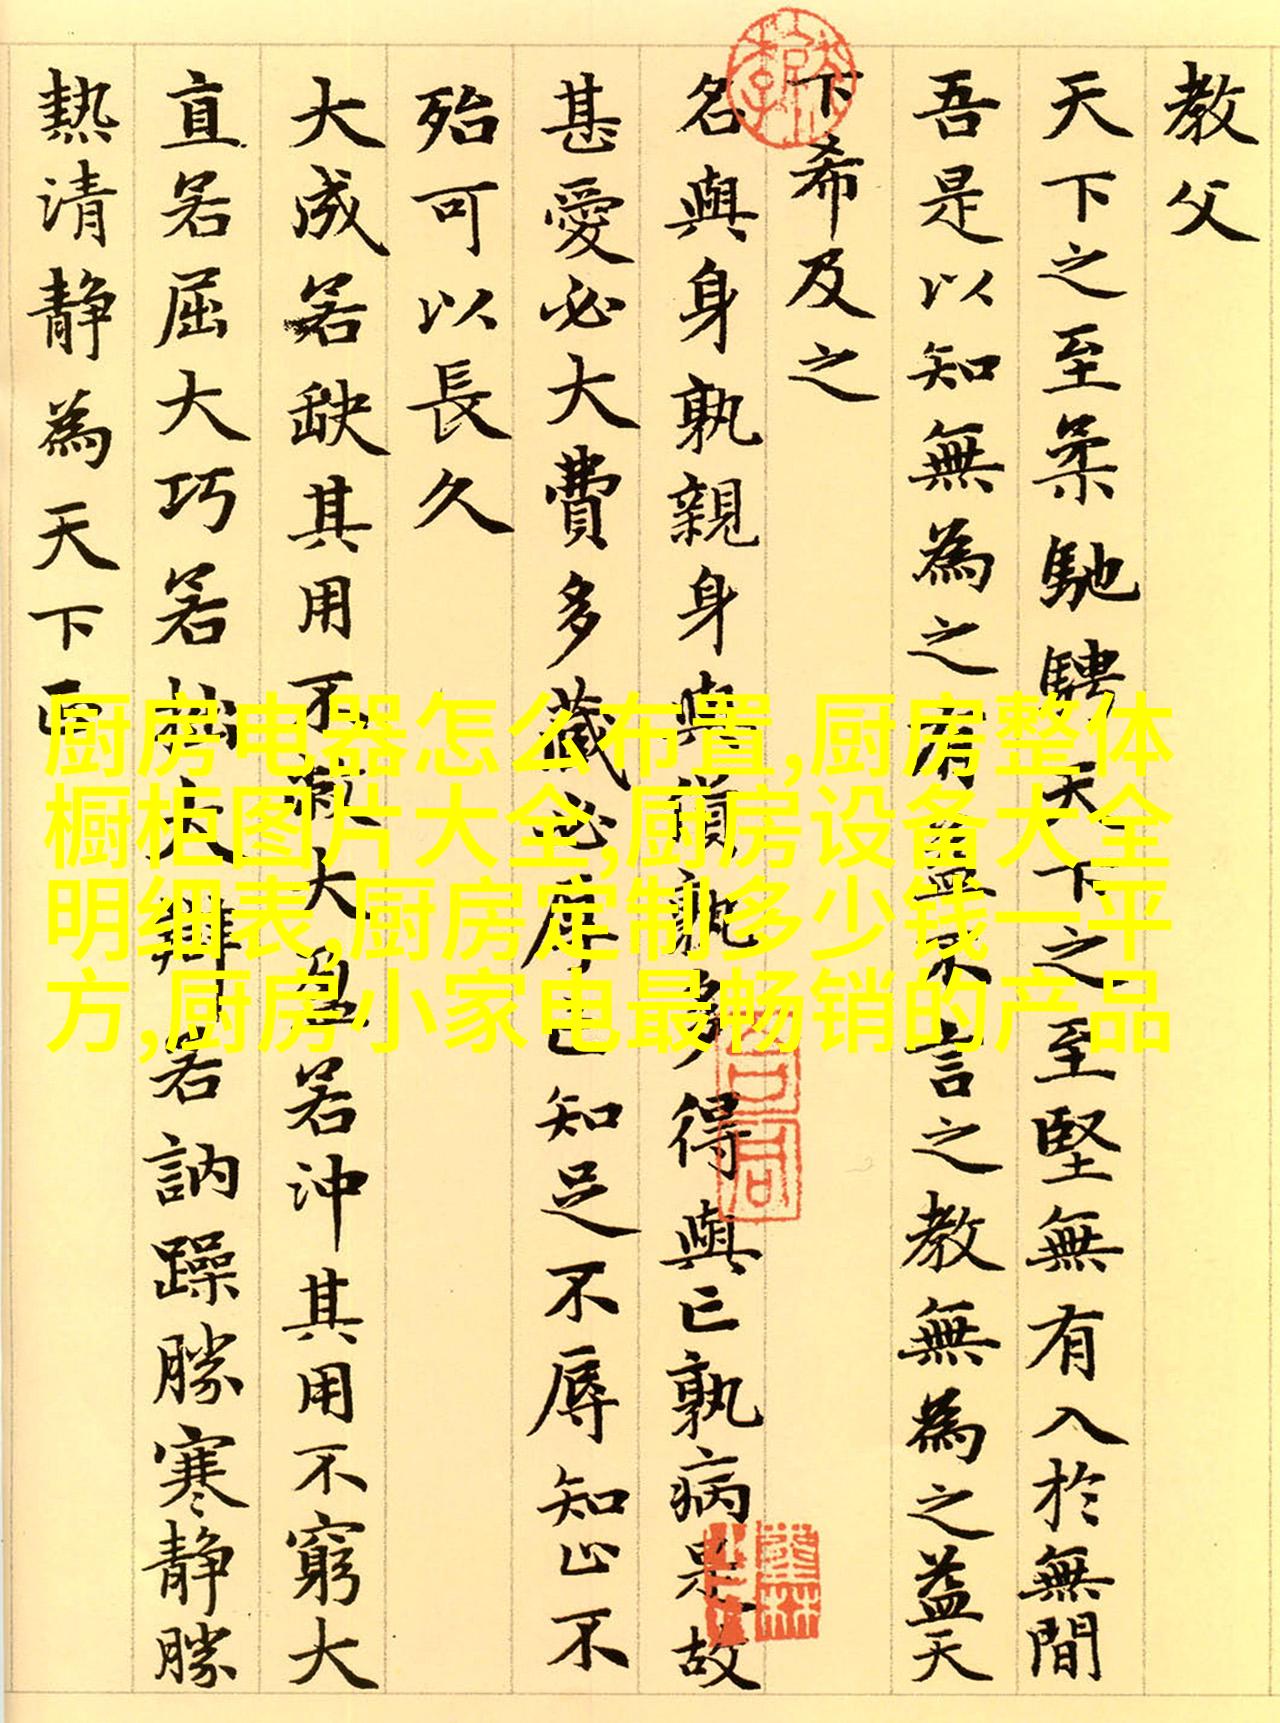 教父
天下之至柔馳騁天下之至堅無有入於無間
吾是以知無為之有益不言之教無為之益天
下希及之
名與身孰親身與貨孰多得與亡孰病是故
甚愛必大費多藏必厚亡知足不辱知止不
殆可以長久
大成若缺其用不弊大盈若沖其用不窮大
直若屈大巧若拙大辯若訥躁勝寒靜勝
熱清靜為天下正
厨房电器怎么布置,厨房整体
橱柜图片大全,厨房设备大全
明细表,厨房定制多少钱一平
方,厨房小家电最畅销的产品